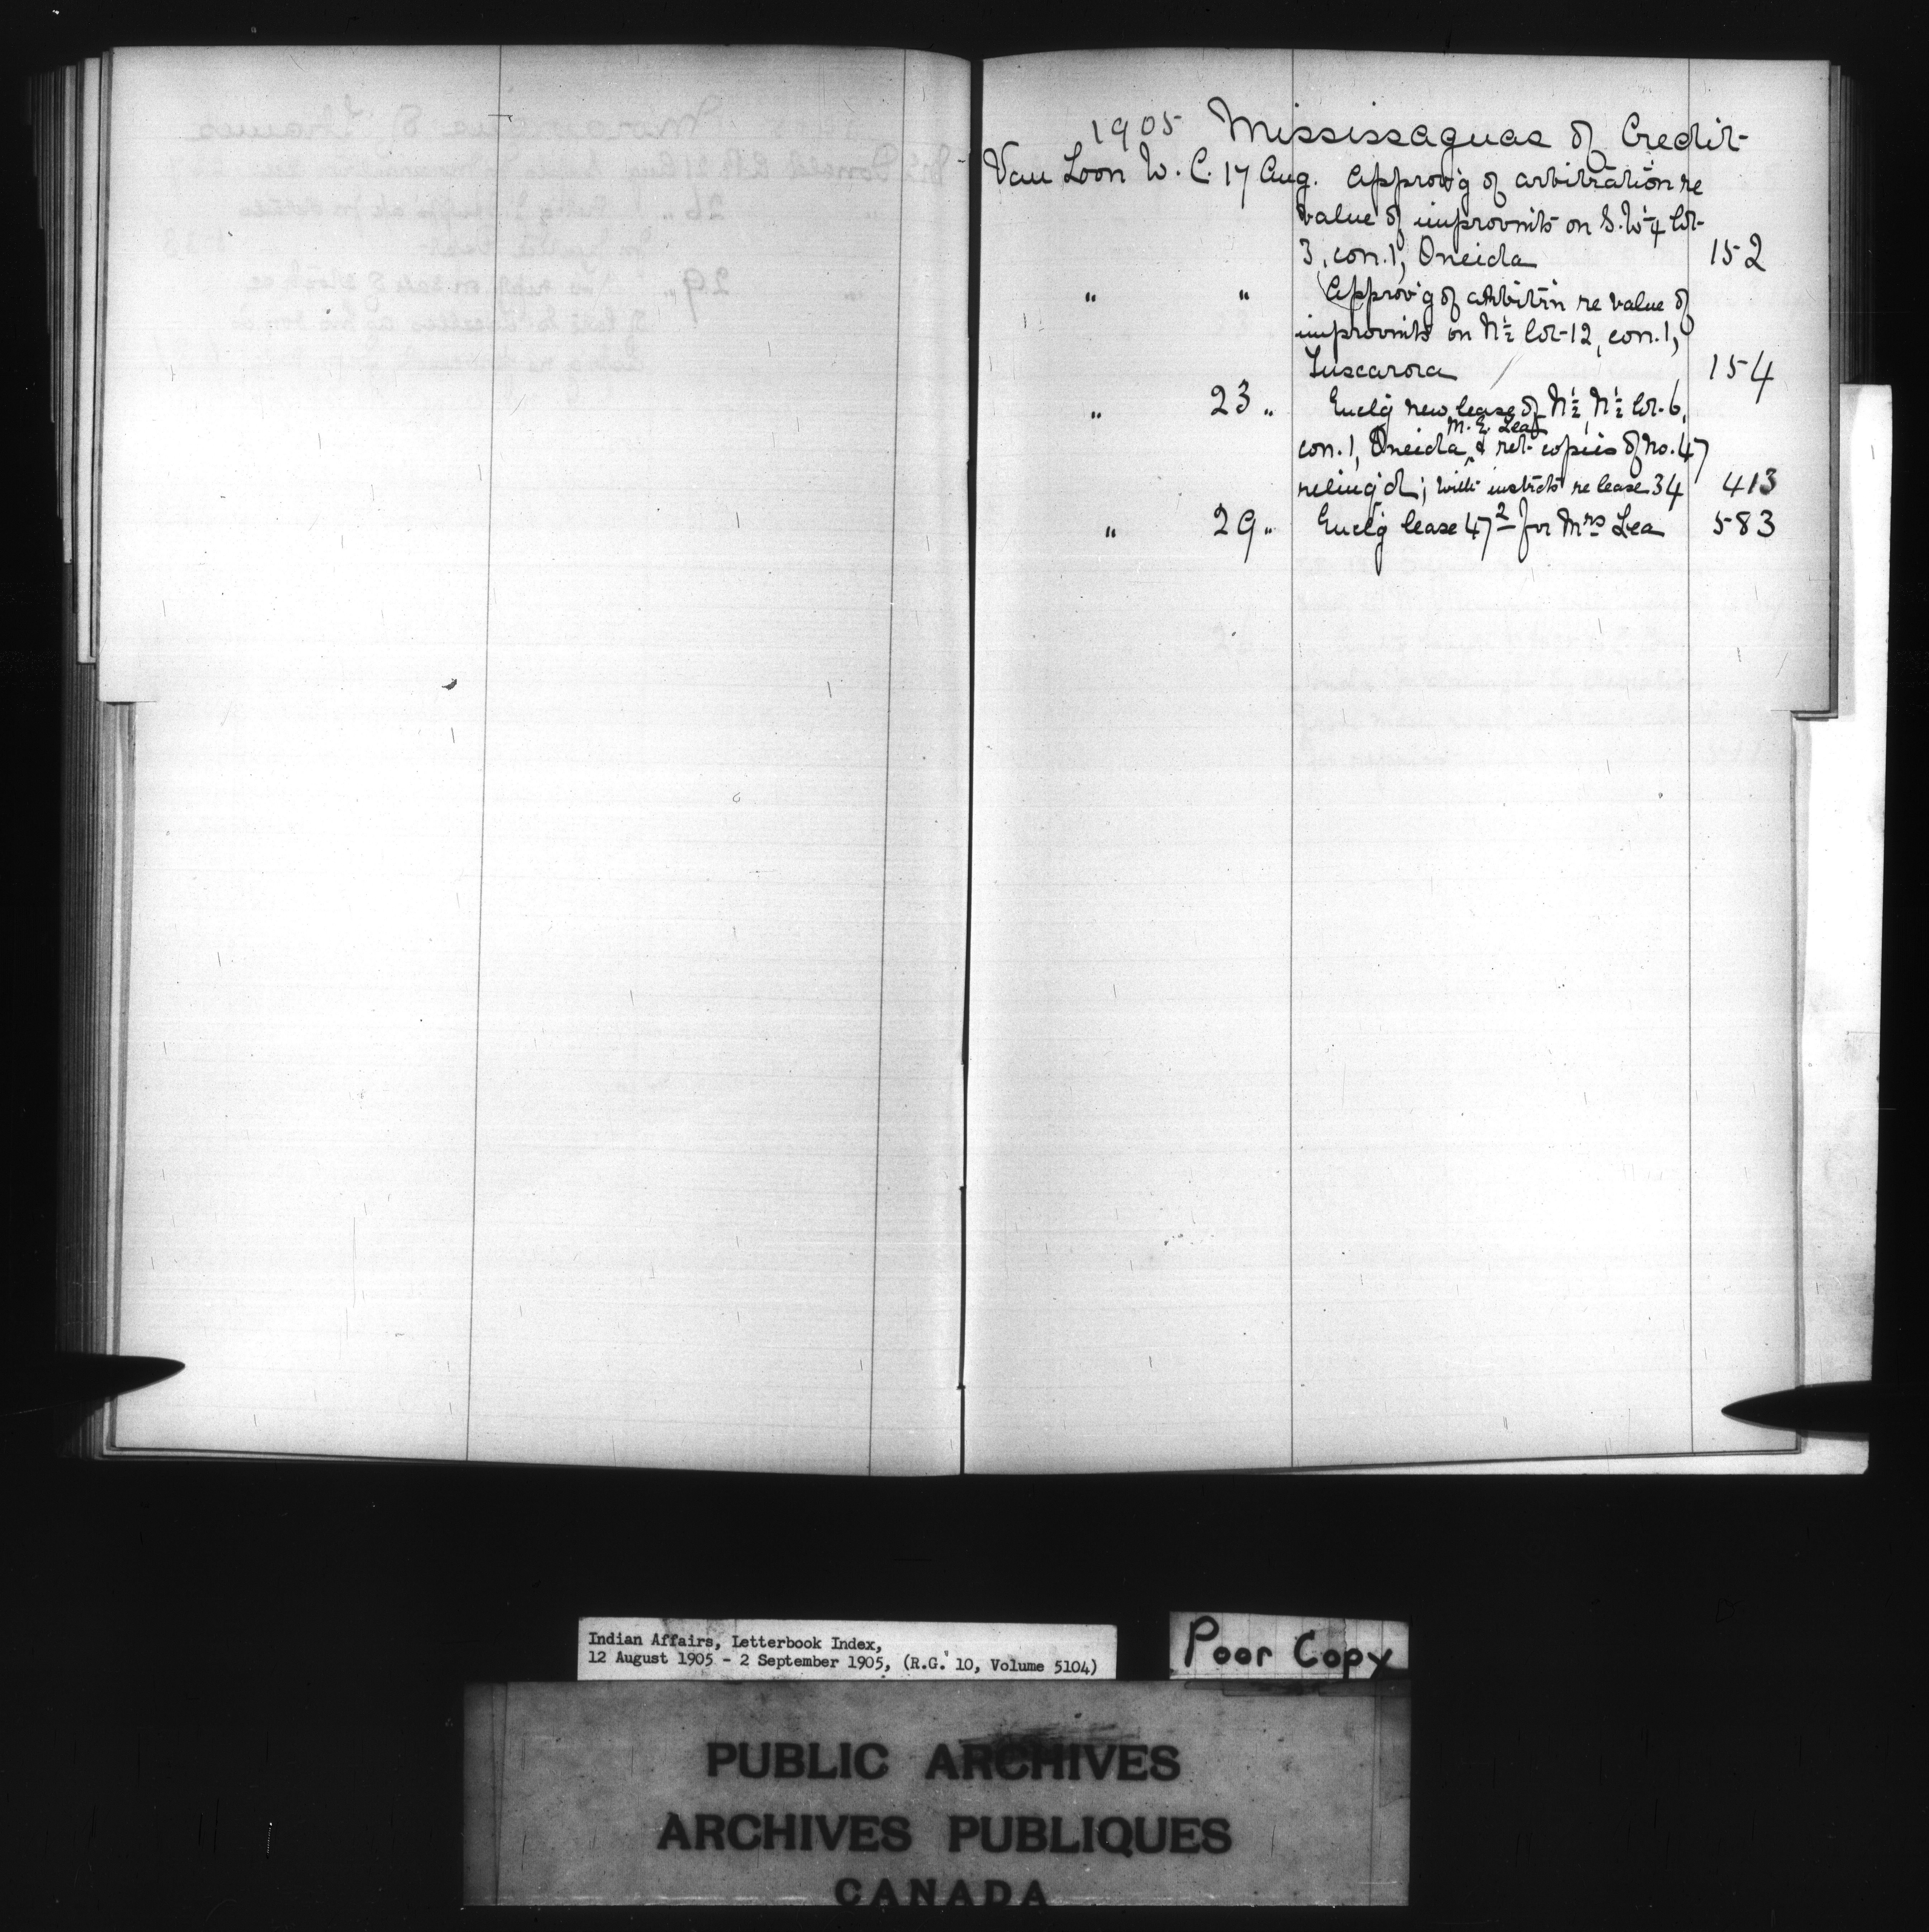 1905 Mississaguas of Credit
Van Loon W. C. 17 Aug. Approv'g of arbitration re
value of improvm'ts on S.W¼ lot
3, con.1, Oneida 152
" " Approv'g of arbitr'n re value of
improvm'ts on N½ lot 12, con.1,
Tuscarora 154
" 23 " Encl'g new lease of N½, N½ lot 6,
M. E. Lea
con.1, Oneida, & ret copies of no. 47
relinq'd; with instr'cts re lease 34 413
" 29 " Encl'g lease 47² for Mrs Lea 583
Indian Affairs, Letterbook Index,
12 August 1905 - 2 September 1905, (R.G. 10, Volume 5104)
Poor Copy
PUBLIC ARCHIVES
ARCHIVES PUBLIQUES
CANADA